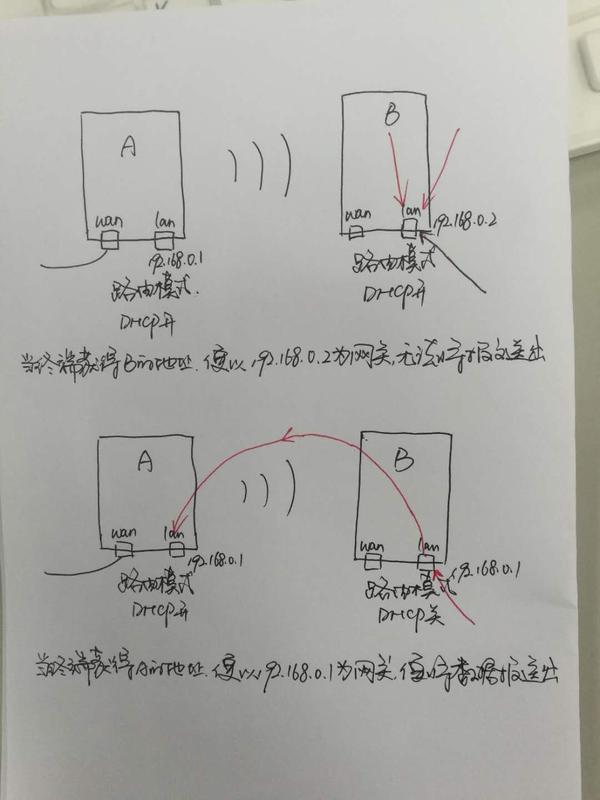 A
B
wan
lan
wan
lan
192.168.0.1
192.168.0.2
路由模式
DHCP开
路由模式
DHCP开
当终端获得B的地址,便以192.168.0.2为网关,无法将报文送出
A
B
wan
lan
wan
lan
192.168.0.1
192.168.0.1
路由模式
DHCP开
路由模式
DHCP关
当终端获得A的地址,便以192.168.0.1为网关,便将数据报送出